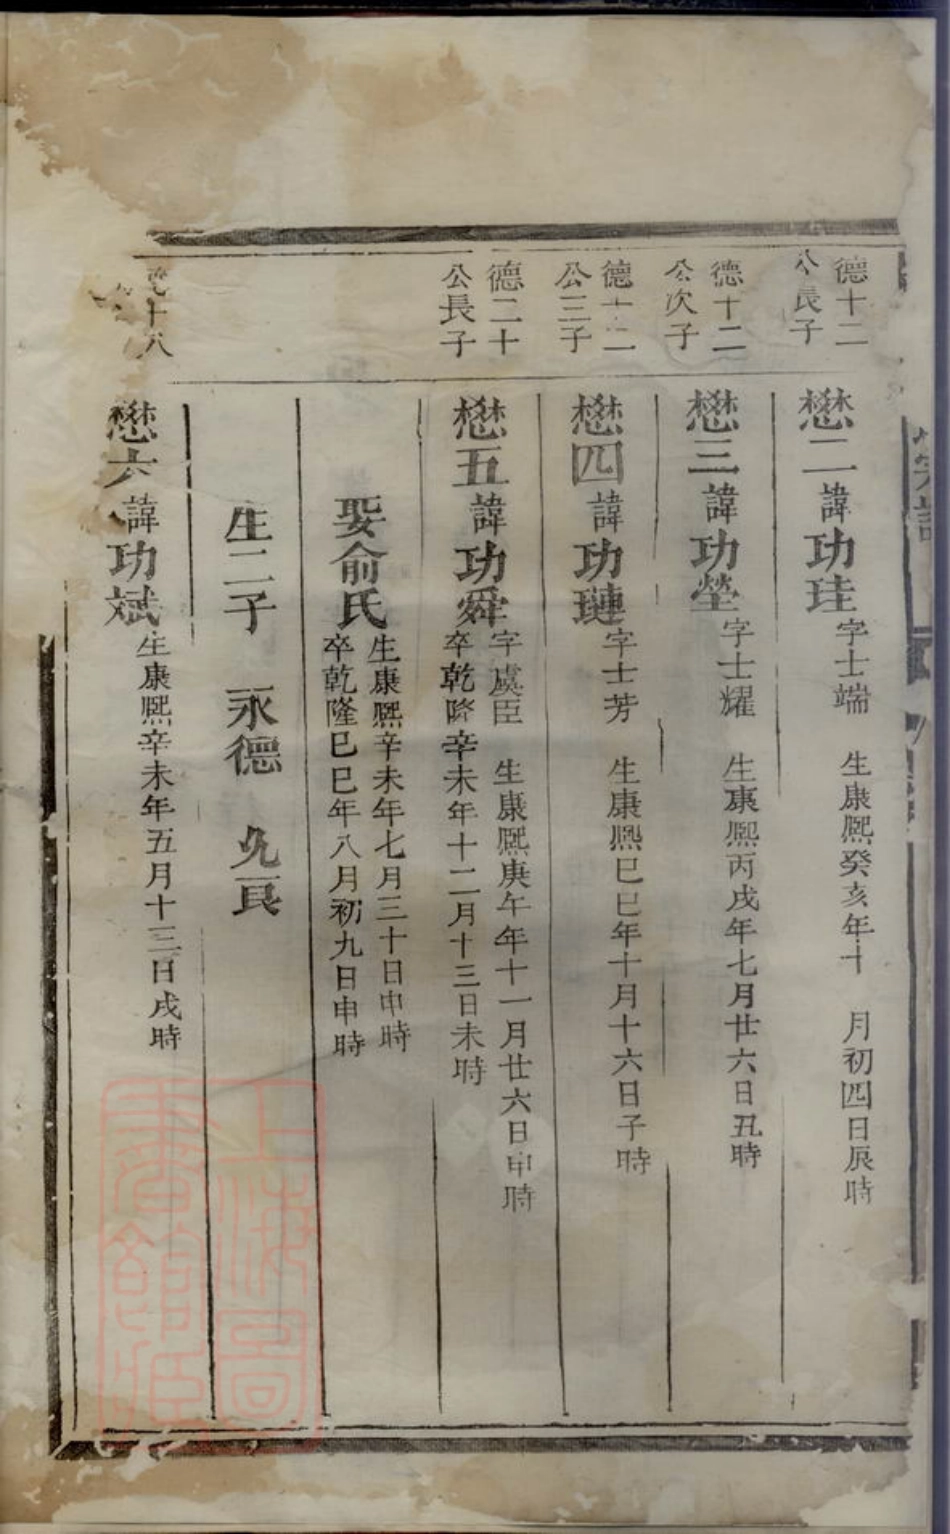 德十二
公長子
懋二諱功珪字士端 生康熙癸亥年十 月初四日辰時
德十二
公次子
懋三諱功瑩字士耀 生康熙丙戌年七月廿六日丑時
德十二
公三子
懋四諱功璉字士芳 生康熙巳巳年十月十六日子時
德二十
公長子
懋五諱功舜
字虞臣 生康熙庚午年十一月廿六日申時
卒乾隆辛未年十二月十三日未時
娶俞氏
生康熙辛未年七月三十日申時
卒乾隆巳巳年八月初九日申時
生二子 永德 允良
十八
懋六諱功斌 生康熙辛未年五月十三日戌時
上海圖
書館藏